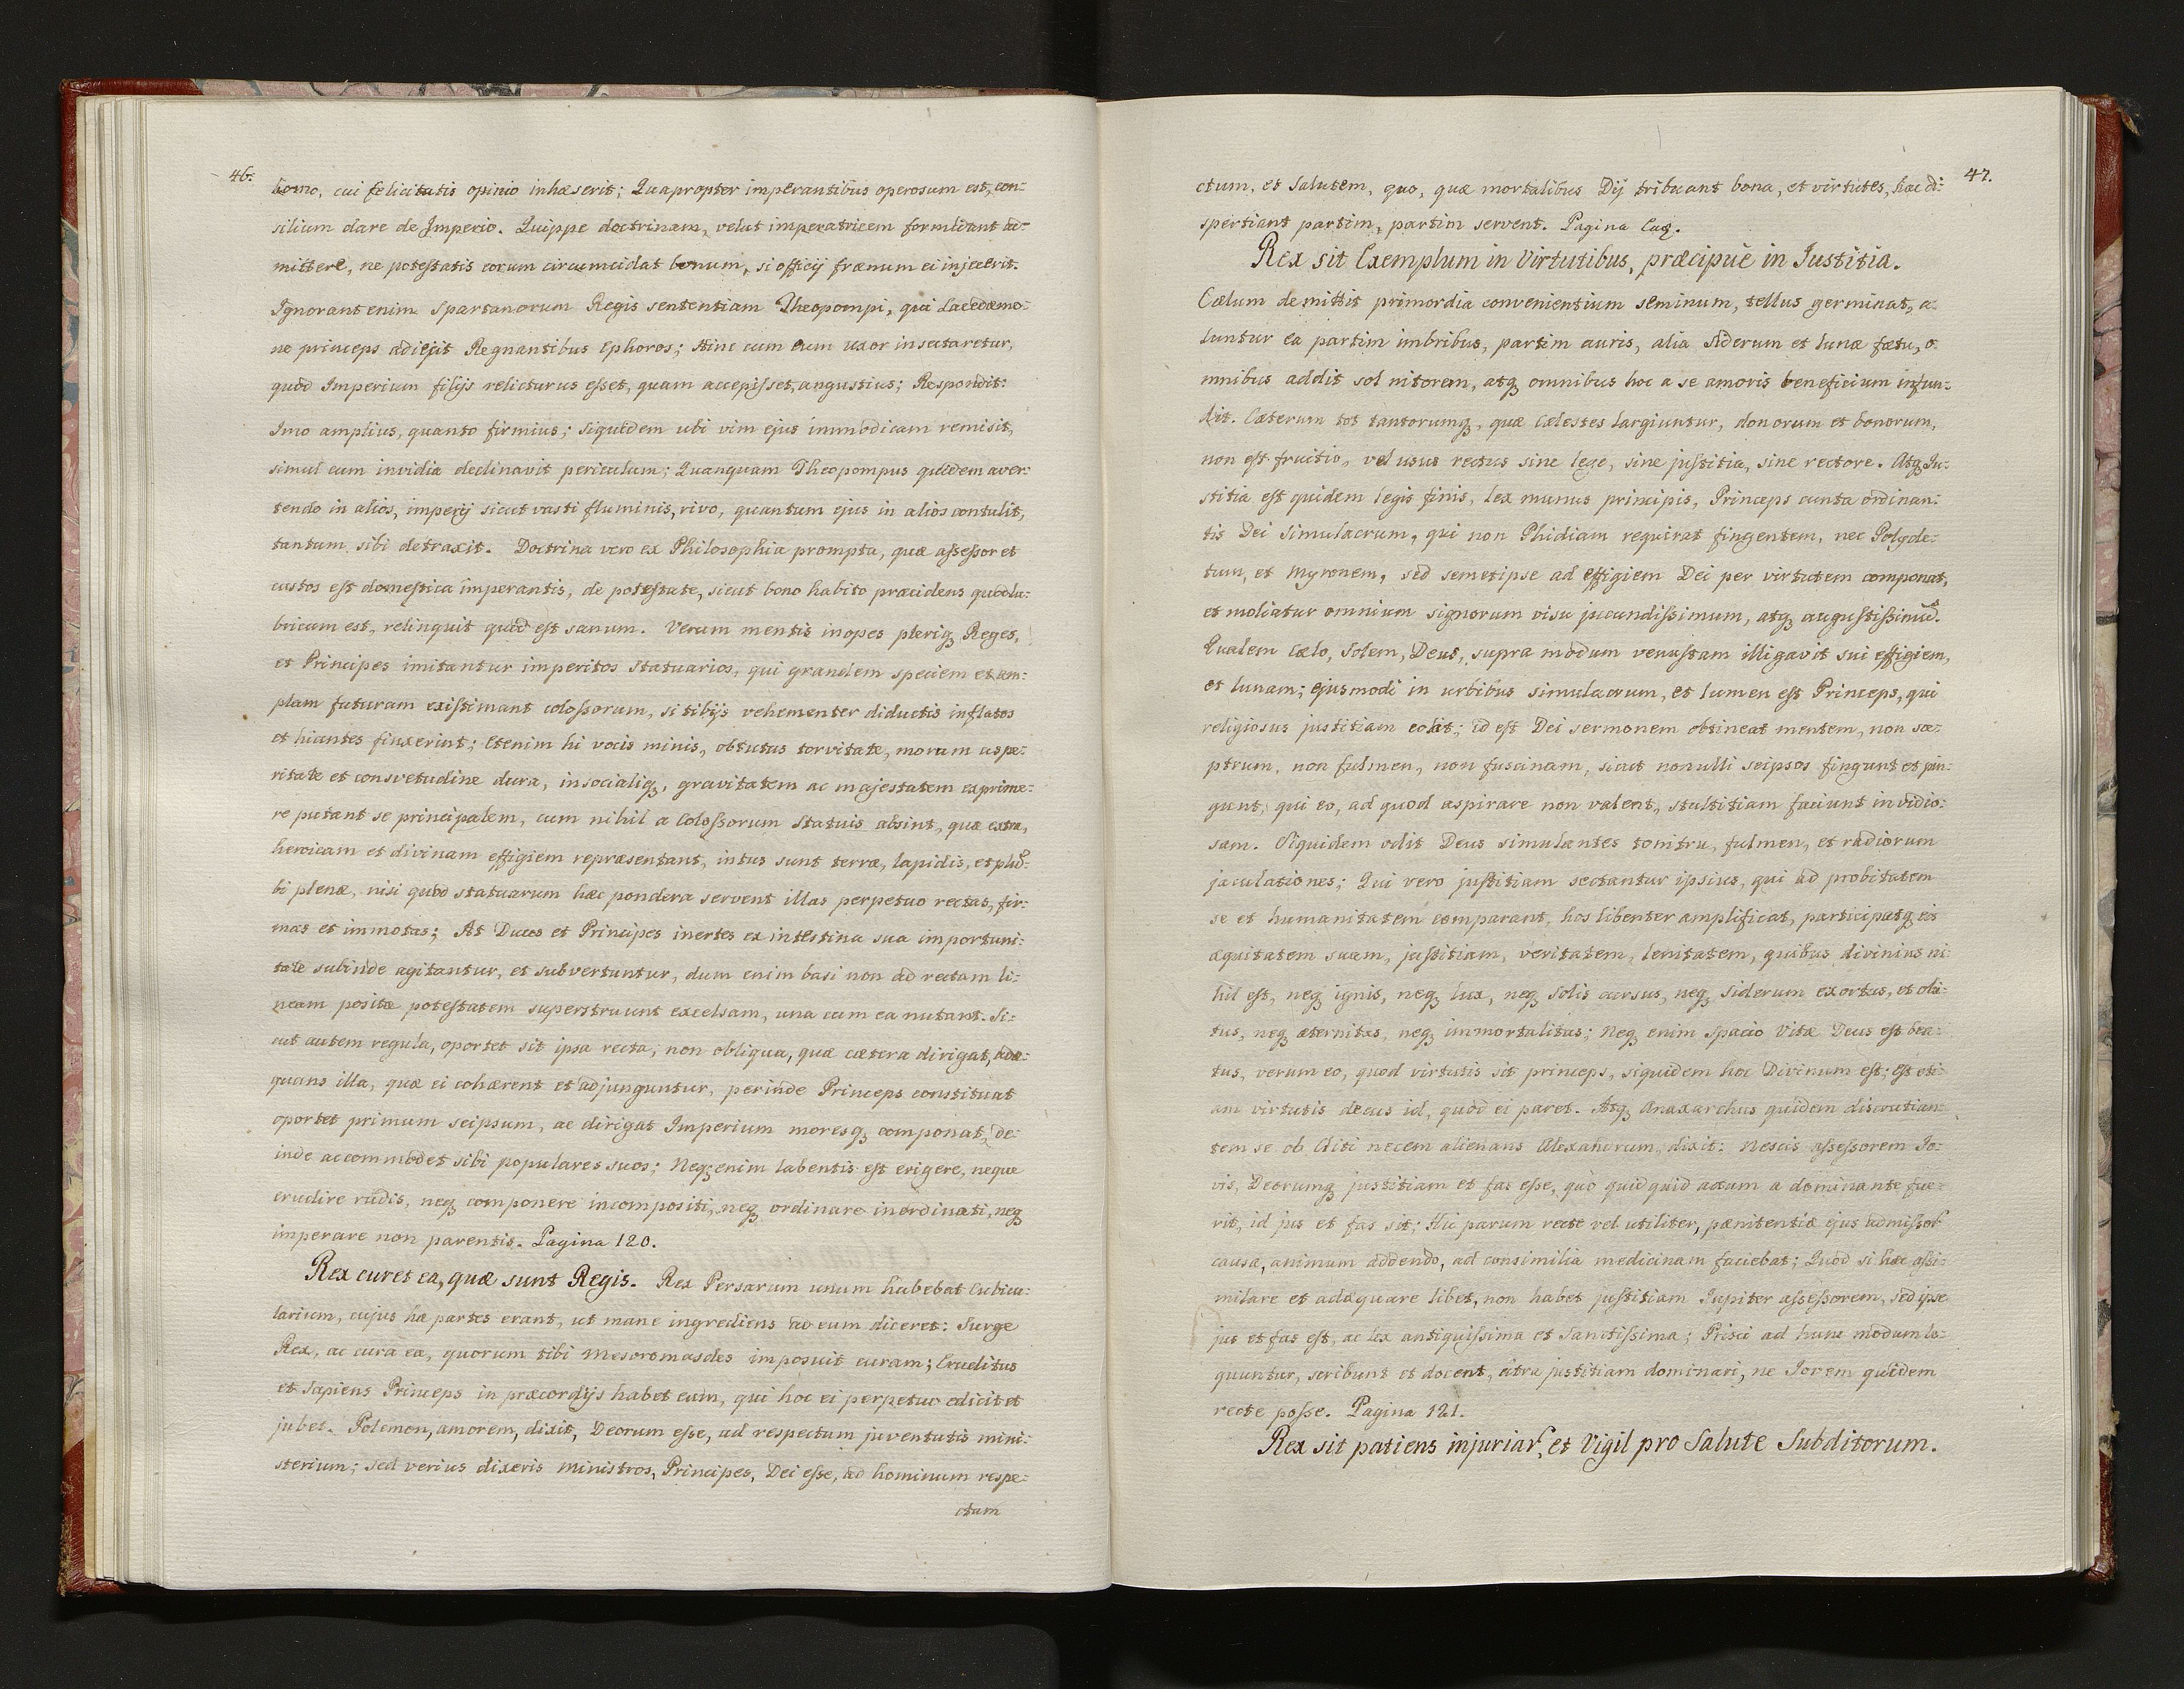 46.
homo, cui felicitatis opinio inhæserit; Quapropter imperantibus operosum est, con:
silium dare de Imperio. Quippe doctrinam, velut imperatricem formidant ad:
mittere, ne potestatis eorum circumcidat bonum, si officij frænum ei injecerit.
Ignorant enim Spartanorum Regis sententiam Theopompi, qui Lacedæmo:
ne princeps adiejit Regnantibus Ephoros; Hinc cum eum uxor insectaretur,
quod Imperium filijs relicturus esset, quam accepisset, angustius; Respondit:
Imo amplius, quanto firmius; siquidem ubi vim ejus immodicam remisit,
simul cum invidia declinavit periculum; Quanquam Theopompus quidem aver:
tendo in alios, imperij sicut vasti fluminis, rivo, quantum ejus in alios contulit,
tantum sibi detraxit. Doctrina vero ex Philosophia prompta, quæ assessor et
custos est domestica imperantis, de potestate, sicut bono habito præcidens quod lu:
bricum est, relinquit quod est sanum. Verum mentis inopes pleriq Reges,
et Principes imitantur imperitos statuarios, qui grandem speciem et am:
plam futuram existimant colossorum, si tibijs vehementer diductis inflatos
et hiantes finxerint; Etenim hi vocis minis, obtutus torvitate, morum aspe:
ritate et consvetudine dura, insocialiq, gravitatem ac majestatem exprime:
re putant se principalem, cum nihil a Colossorum Statuis absint, quæ extra,
heroicam et divinam effigiem repræsentant, intus sunt terræ, lapidis, et plũ:
bi plenæ, nisi quod statuarum hæc pondera servent illas perpetuo rectas, fir:
mas et immotas; At Duces et Principes inertes ex intestina sua importuni:
tate subinde agitantur, et subvertuntur, dum enim basi non ad rectam li:
neam positæ potestatem superstruunt excelsam, una cum ea nutant. Si:
cut autem regula, oportet sit ipsa recta, non obliqua, quæ cætera dirigat, adæ:
quans illa, quæ ei cohærent et adjunguntur, perinde Princeps constituat
oportet primum seipsum, ac dirigat Imperium moresq componat, de:
inde accommodet sibi populares suos; Neq enim labentis est erigere, neque
erudire rudis, neq componere incompositi, neq ordinare inordinati, neq
imperare non parentis. Pagina 120.
Rex curet ea, quæ sunt Regis. Rex Persarum unum habebat Cubicu:
larium, cujus hæ partes erant, ut mane ingrediens ad eum diceret: Surge
Rex, ac cura ea, quorum tibi Mesoromasdes imposuit curam; Eruditus
et Sapiens Princeps in præcordijs habet eum, qui hoc ei perpetuo edicit et
jubet. Polemon, amorem, dixit, Deorum esse, ad respectum juventutis mini:
sterium; Sed verius dixeris Ministros, Principes, Dei esse, ad hominum respe:
ctum
47.
ctum, et Salutem, quo, quæ mortalibus Dij tribuant bona, et virtutes, hæc di:
spertiant partim, partim servent. Pagina Eaq.
Rex sit Exemplum in Virtutibus, præcipue in Iustitia.
Cælum demittit primordia convenientium seminum, tellus germinat, a:
luntur ea partim imbribus, partim auris, alia siderum et lunæ fætu, o:
mnibus addit sol nitorem, atq omnibus hoc a se amoris beneficium infun:
dit. Cæterum tot tantorumq, quæ Cælestes largiuntur, donorum et bonorum,
non est fruitio, vel usus rectus sine lege, sine justitia, sine rectore. Atq Ju:
stitia est quidem legis finis, lex munus principis, Princeps cunta ordinan:
tis Dei Simulacrum, qui non Phidiam requirat fingentem, nec Polycle:
tum, et Myronem, sed semetipse ad effigiem Dei per virtutem componat,
et moliatur omnium signorum visu jucundissimum, atq augustissimũ.
Qualem Cælo, Solem, Deus, supra modum venustam illigavit sui effigiem,
et lunam; ejusmodi in urbibus simulacrum, et lumen est Princeps, qui
religiosus justitiam colit; id est Dei sermonem obtineat mentem, non sce:
ptrum, non fulmen, non fuscinam, sicut nonulli seipsos fingunt et pin:
gunt, qui eo, ad quod aspirare non valent, stultitiam faciunt invidio:
sam. Siquidem odit Deus simulantes tonitru, fulmen, et radiorum
jaculationes; Qui vero justitiam sectantur ipsius, qui ad probitatem
se et humanitatem comparant, hos libenter amplificat, participatq eis
æquitatem suam, justitiam, veritatem, lenitatem, quibus divinius ni:
hil est, neq ignis, neq lux, neq Solis cursus, neq siderum exortus, et obi:
tus, neq æternitas, neq immortalitas; Neq enim Spacio Vitæ Deus est bea:
tus, verum eo, quod virtutis sit princeps, siquidem hoc Divinum est; Est eti:
am virtutis decus id, quod ei paret. Atq Anaxarchus quidem discrutian:
tem se ob Cliti necem alienans Alexandrum, dixit: Nescis assessorem Jo:
vis, Deorumq justitiam et fas esse, quo quidquid actum a dominante fue:
rit, id jus et fas sit; Hic parum recte vel utiliter, pænitentiæ ejus admissor
causa, animum addendo, ad consimilia medicinam faciebat; Quod si hæc assi:
milare et adæquare libet, non habet justitiam Jupiter assessorem, sed ipse
jus et fas est, ac lex antiquissima et Sanctissima; Prisci ad hunc modum lo:
quuntur, scribunt et docent, citra justitiam dominari, ne Jovem quidem
recte posse. Pagina 121.
Rex sit patiens injuriar, et Vigil pro Salute Subditorum.